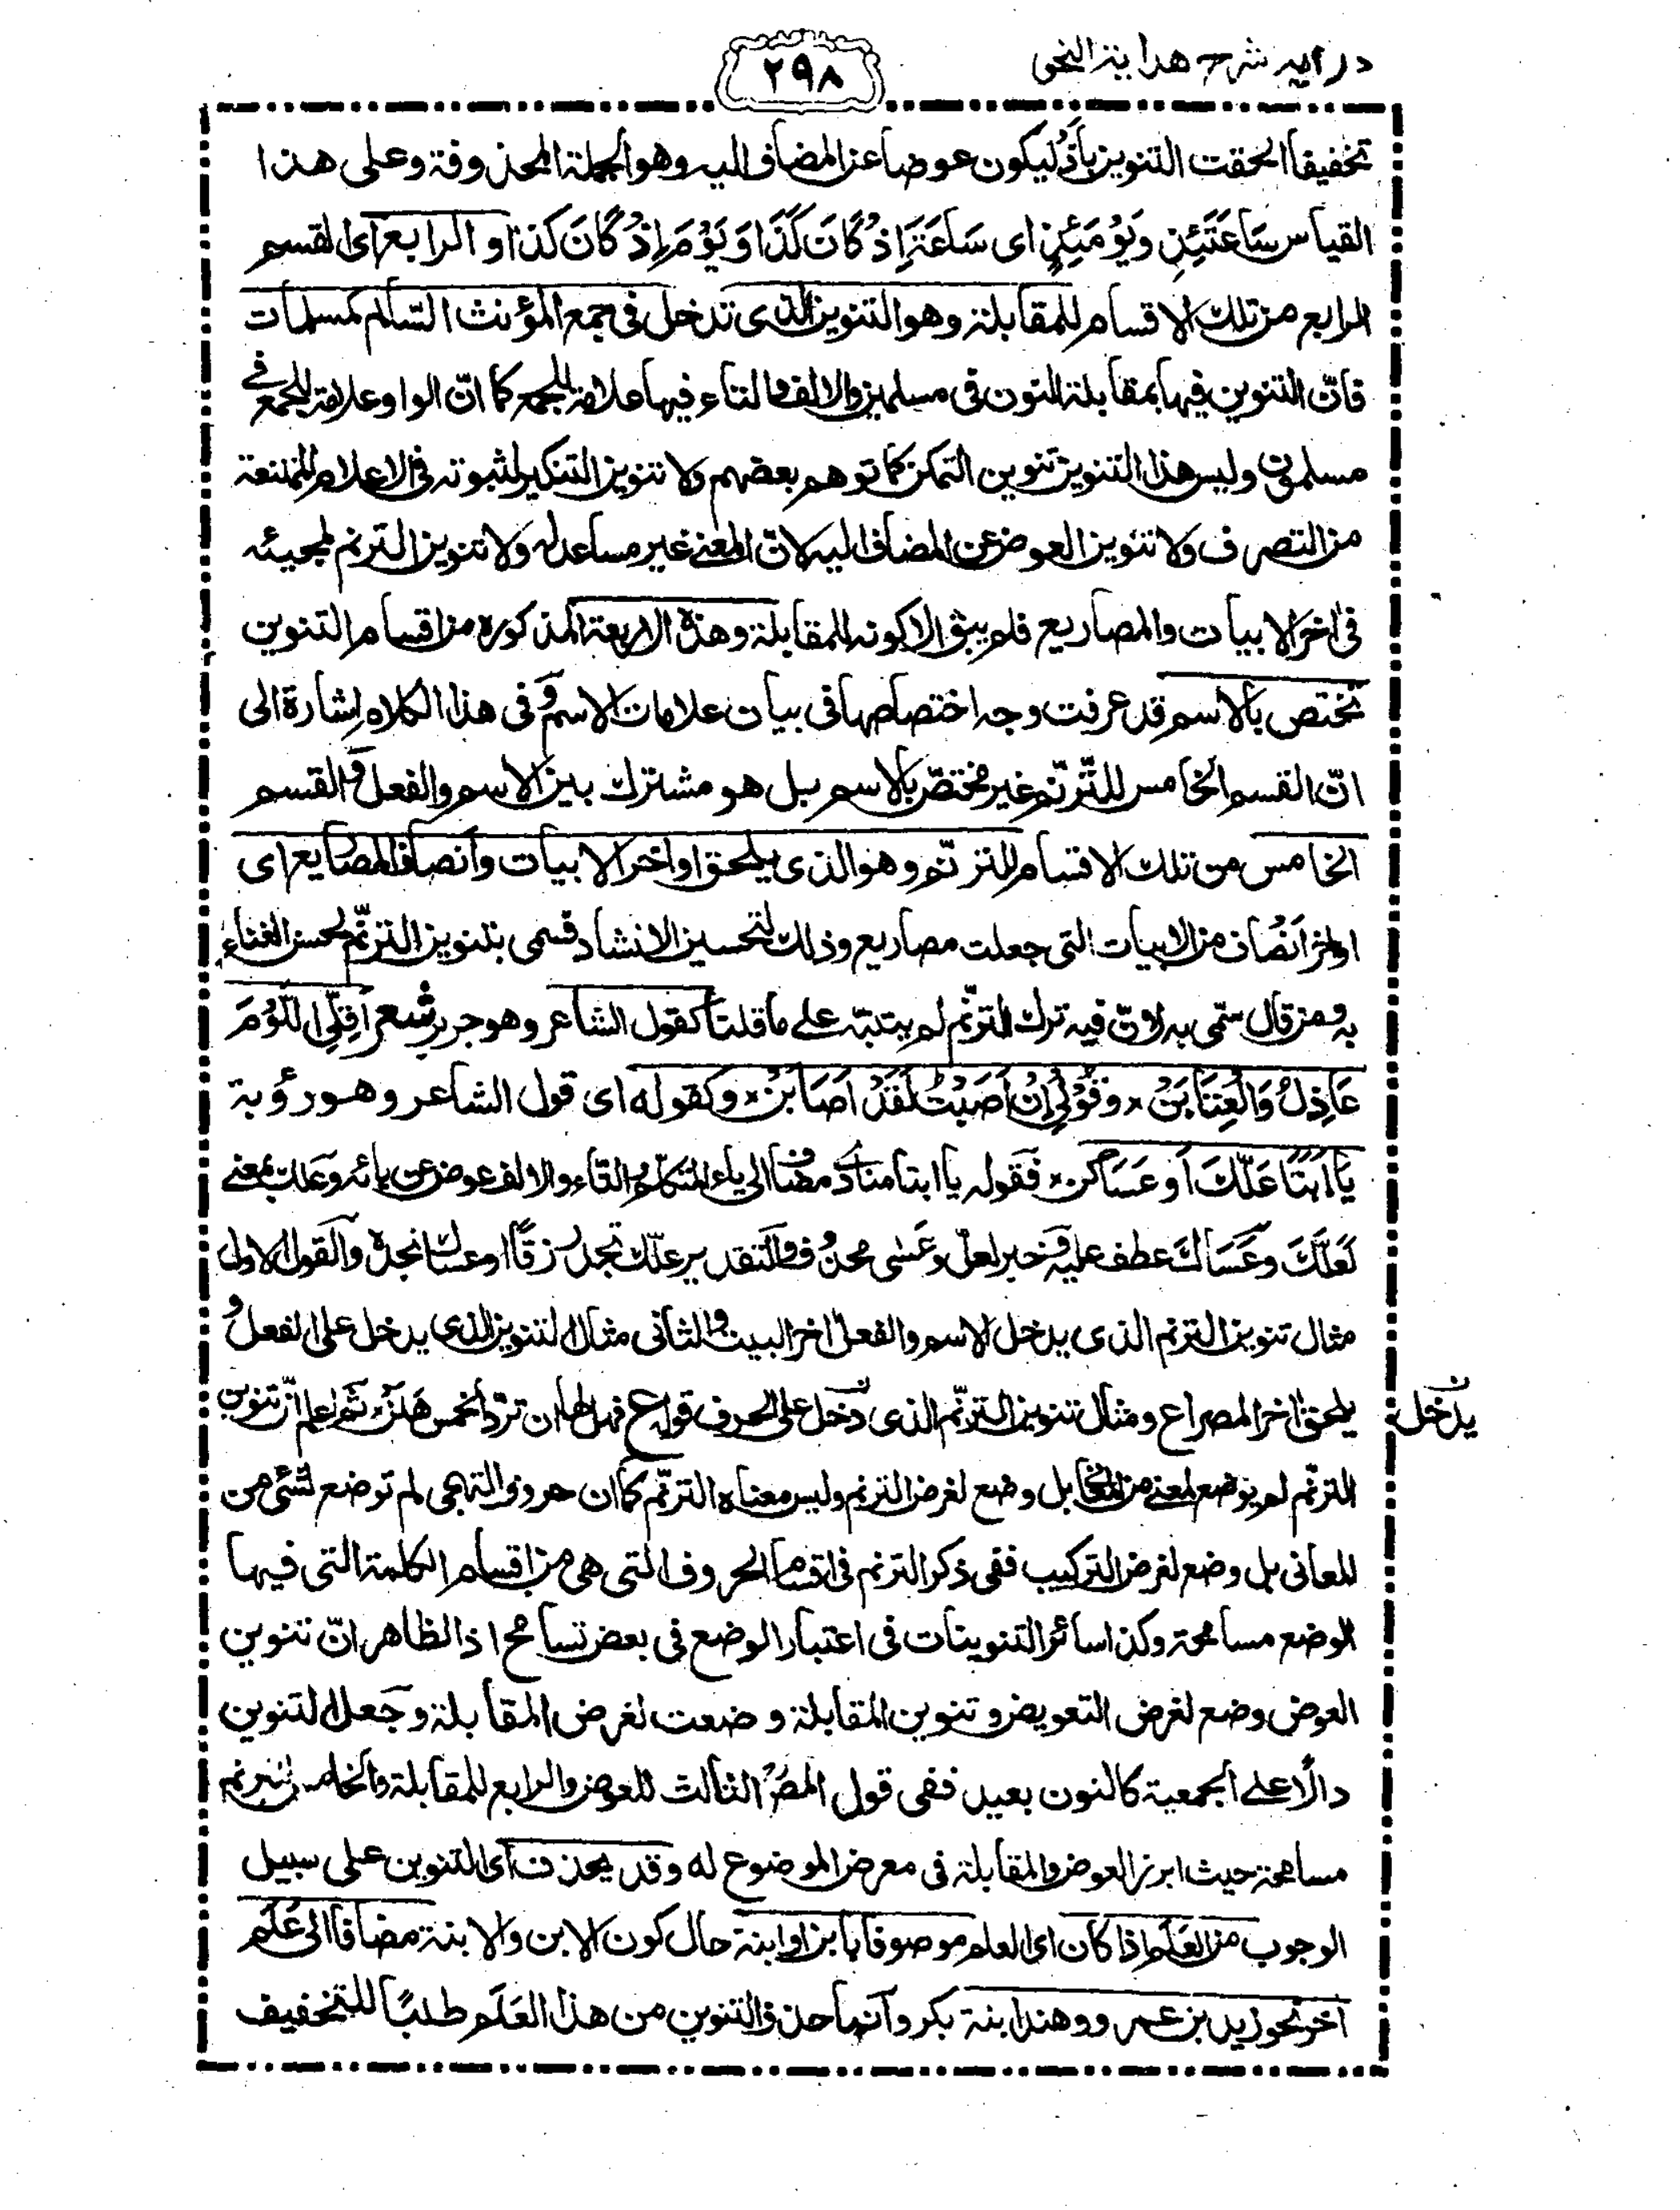 درايه شرح هداية النحو
٢٩٨
تخفيفا الحقت التنوين باذ ليكون عوضا عن المضاف اليه وهو الجملة المحذوفة وعلى هذا
القياس سَاعَتَئِذٍ وَيَوْمَئِذٍ اى سَاعَةَ اِذْ كَانَ كَذَا وَيَوْمَ اِذْ كَانَ كَذَا و الرابع اى القسم
الرابع من تلك الاقسام للمقابلة وهو التنوين الذى تدخل فى جمع المؤنث السّالم كمسلمات
فانّ التنوين فيها بمقابلة النون فى مسلمين والالف والتاء فيها علامة للجمع كما انّ الواو علامة للجمع فى
مسلمون وليس هذا التنوين تنوين التمكن كما توهم بعضهم ولا تنوين التنكير لثبوته فى الاعلام الممتنعة
من التصرف ولا تنوين العوض عن المضاف اليه لانّ المعنى غير مساعد له ولا تنوين الترنم لمجيئه
فى اخر الابيات والمصاريع فلم يبق الا كونه للمقابلة وهذه الاربعة المذكورة من اقسام التنوين
تختص بالاسم قد عرفت وجه اختصاصها فى بيان علامات الاسم وفى هذا الكلام اشارة الى
انّ القسم الخامس للتّرنّم غير مختصّ بالاسم بل هو مشترك بين الاسم والفعل والقسم
الخامس من تلك الاقسام للترنّم وهو الذى يلحق اواخر الابيات وانصاف المصاريع اى
اواخر انصاف من الابيات التى جعلت مصاريع وذلك لتحسين الانشاد فسمى بتنوين الترنّم لحسن الغناء
به ومن قال سمّى به لانّ فيه ترك الترنّم لم يتنبّه على ما قلنا كقول الشاعر وهو جرير شعر اَقِلِّى اللَّوْمَ
عَاذِلُ وَالْعِتَابَنْ ٭ وَقُوْلِىْ اِنْ اَصَبْتُ لَقَدْ اَصَابَنْ ٭ وكقوله اى قول الشاعر وهو رؤبة
يَا اَبَتَا عَلَّكَ اَوْ عَسَاكَنْ ٭ فقوله يا ابتا منادى مضاف الى ياء المتكلم والتاء والالف عوض عن يائه وعلك بمعنى
لَعَلَّكَ وعَسَاكَ عطف عليه وخبر لعلّ وعَسٰى محذوف والتقدير علّك تجد رزقًا او عساك تجده والقول الاول
مثال تنوين الترنم الذى يدخل الاسم والفعل اخر البيت والثانى مثال التنوين الذى يدخل على الفعل و
يلحق اخر المصراع ومثال تنوين الترنّم الذى دخل على الحرف قوله ع فهل لها ان تردّ الخمس هَلَنْ ٭ ثم اعلم انّ تنوين
يدخل
الترنّم لم يوضع لمعنى من المعانى بل وضع لغرض الترنم وليس معناه الترنّم كما ان حروف التهجى لم توضع لشئ من
المعانى بل وضع لغرض التركيب ففى ذكر الترنم فى اقسام الحروف التى هى من اقسام الكلمة التى فيها
الوضع مسامحة وكذا سائر التنوينات فى اعتبار الوضع فى بعض تسامح اذ الظاهر انّ تنوين
العوض وضع لغرض التعويض وتنوين المقابلة وضعت لغرض المقابلة وجعل التنوين
دالًّا على الجمعية كالنون بعيد ففى قول المصرح الثالث للعوض والرابع للمقابلة والخامس للترنم
مسامحة حيث ابرز العوض والمقابلة فى معرض الموضوع له وقد يحذف اى التنوين على سبيل
الوجوب من العَلَم اذا كان اى العلم موصوفا بابن او ابنة حال كون الابن والابنة مضافا الى عَلَم
اخر نحو زيد بن عمرو وهند ابنة بكر وانما حذف التنوين من هذا العَلَم طلبًا للتخفيف